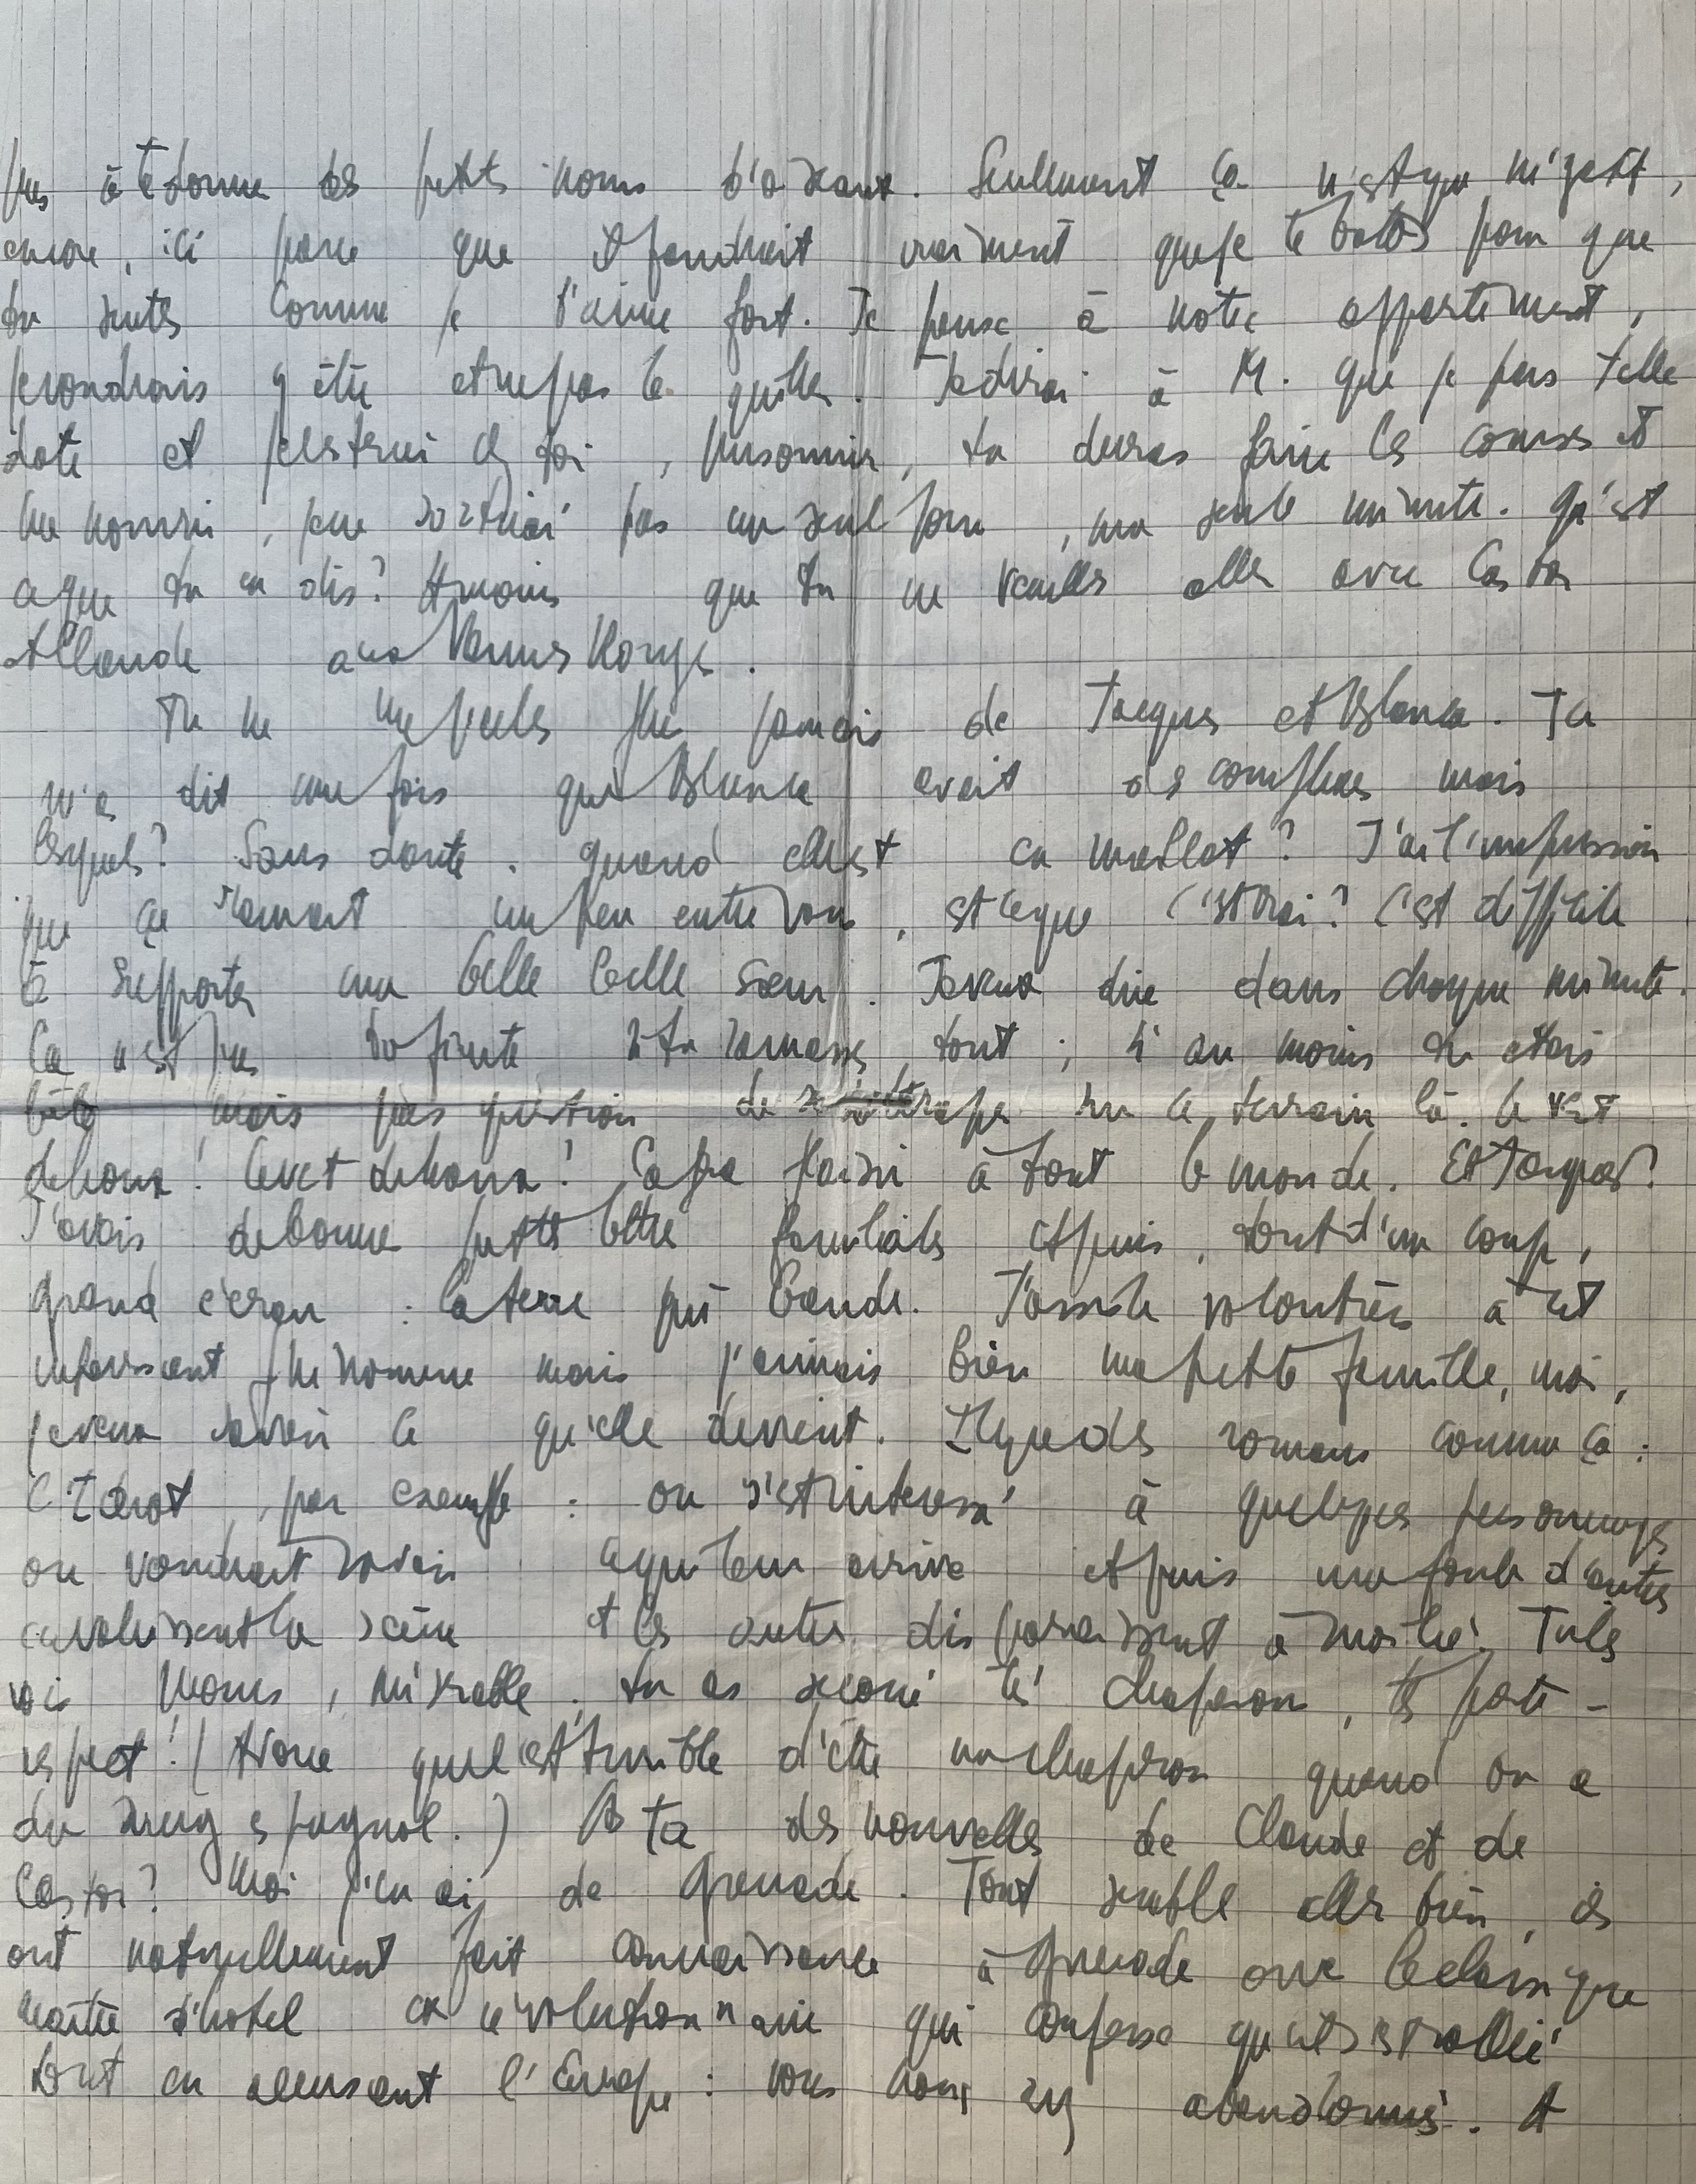 pas à te donner des petits noms d'oiseaux. Seulement ça n'est que négatif,
encore, ici parce que il faudrait vraiment que je te batte pour que
tu sentes comme je t'aime fort. Je pense à notre appartement,
je voudrais y être et ne pas le quitter. Je dirai à M. que je pars telle
date et je resterai chez toi, prisonnier, tu devras faire les courses et
me nourrir, je ne sortirai pas un seul jour, une seule minute. Qu'est
ce que tu en dis? A moins que tu ne veuilles aller avec Castor
et Claude aux Vannes Rouges.
Tu ne me parles plus jamais de Jacques et Blanca. Tu
m'as dit une fois que Blanca avait des complexes mais
lesquels? Sans doute quand elle est en maillot? J'ai l'impression
que ça un peu entre vous, est ce que c'est vrai? C'est difficile
à supporter une belle belle sœur. Je veux dire dans chaque minute.
Ça n'est pas ta faute si tu ramasses tout ; si au moins tu étais
bête mais pas question de sur ce terrain là. Ce
dehors! dehors! Ça fera plaisir à tout le monde. Et Jacques?
J'avais de bonnes petites lettres familiales et puis, tout d'un coup,
grand écran : la terre qui bande. J'assiste volontiers à cet
intéressant phénomène mais j'aimais bien ma petite famille, moi,
je veux savoir ce qu'elle devient. Il y a des romans comme ça :
, par exemple : on s'est intéressé à quelques personnages
on voudrait savoir ce qui leur arrive et puis une foule d'autres
envahissent la scène et les autres disparaissent à moitié. Tu les
vois moins, misérable, tu as secoué tes chaperons, tes porte-
respect! (Avoue que c'est terrible d'être un chaperon quand on a
du sang espagnol.) As tu des nouvelles de Claude et de
Castor? Moi j'en ai, de Grenade. Tout semble aller bien, ils
ont naturellement fait connaissance à Grenade avec le classique
maître d'hotel ex révolutionnaire qui confesse qu'il s'est rallié
tout en accusant l'Europe : vous nous abandonnés. A